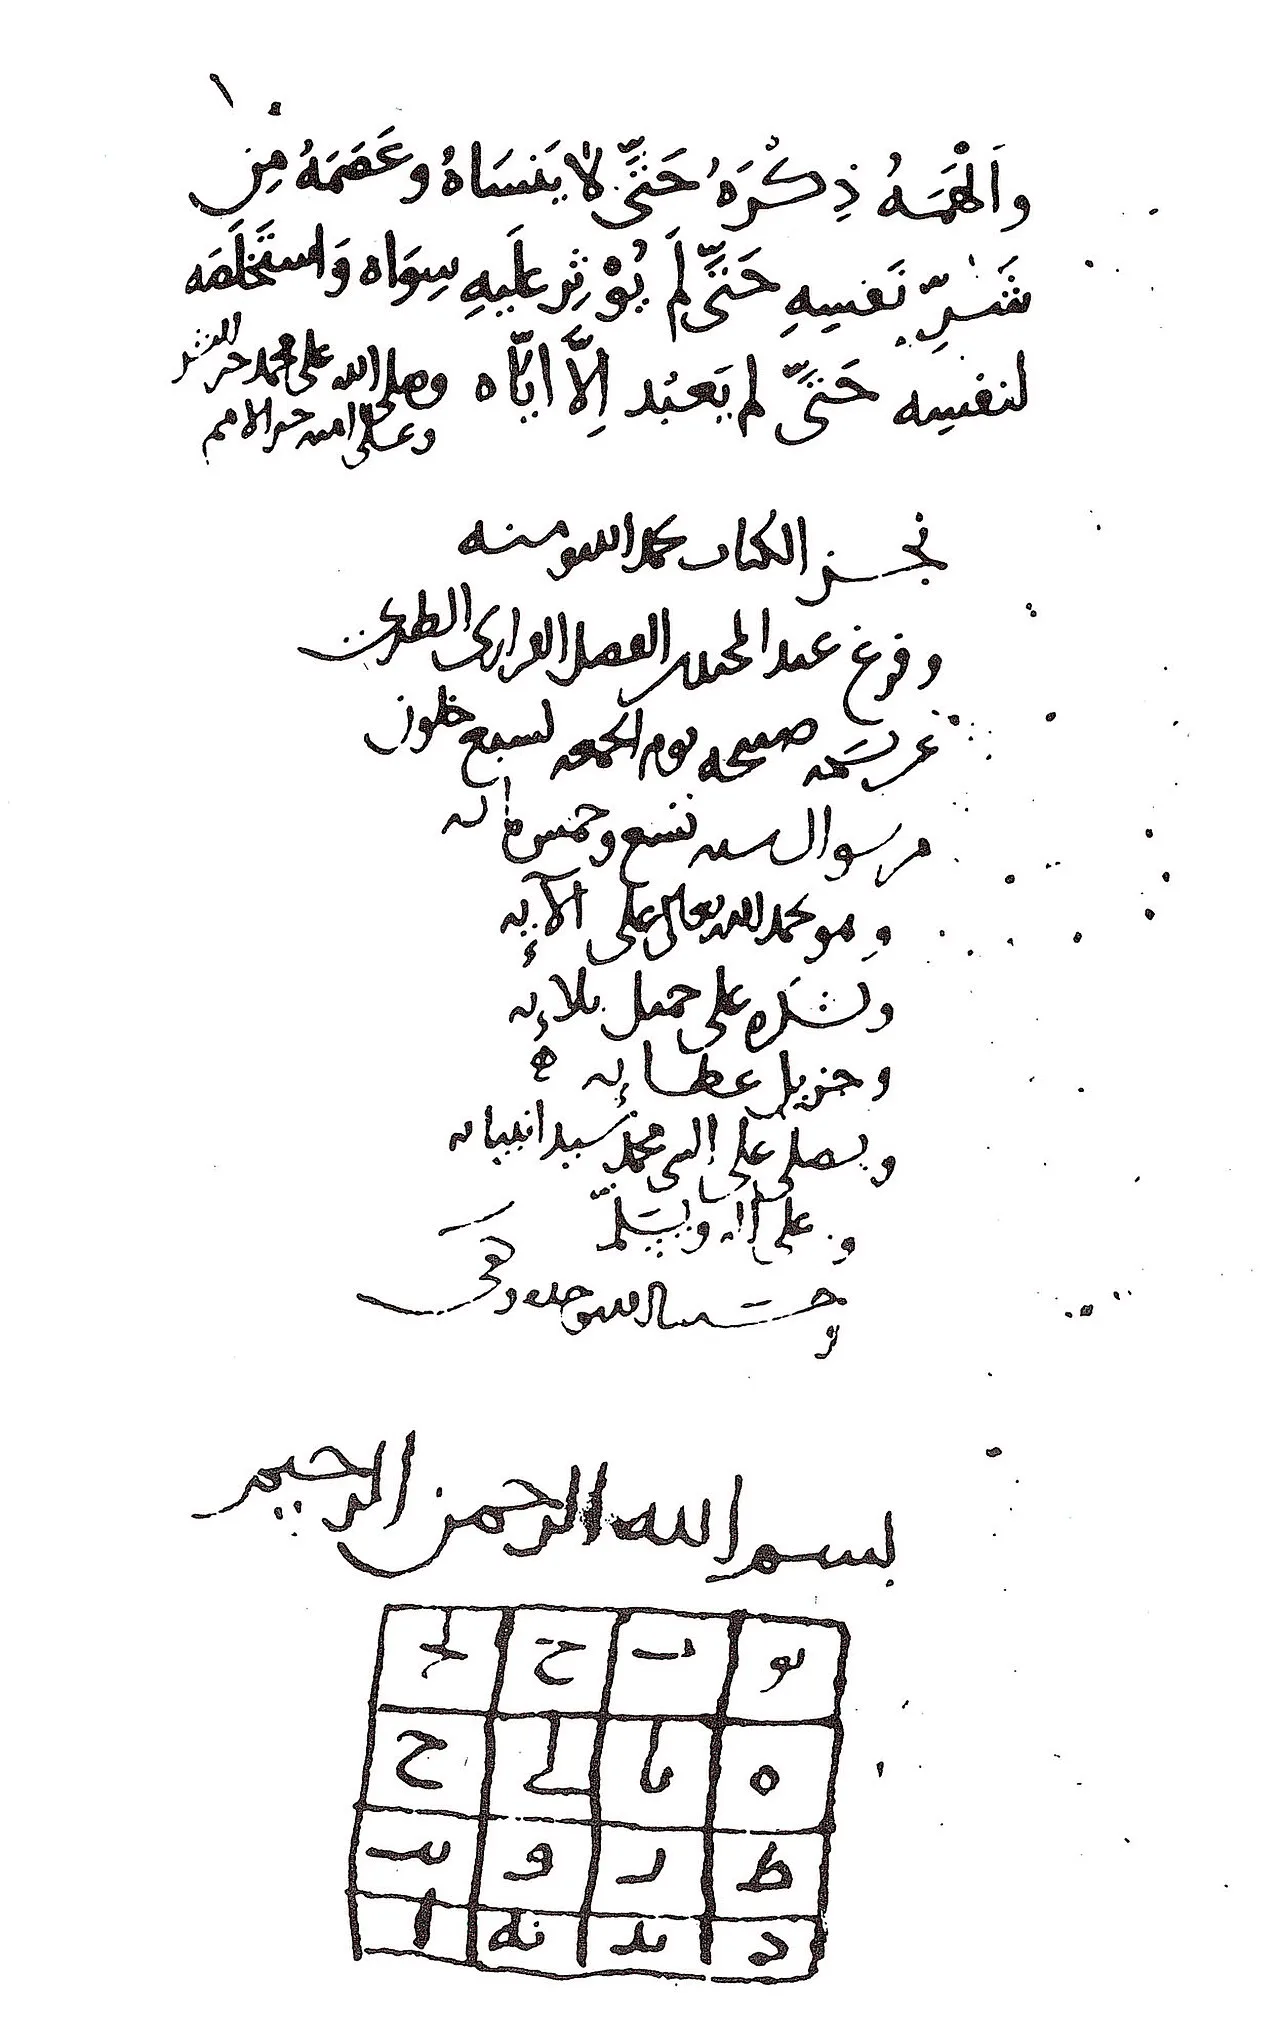 والهمه ذِكْرَهُ حَتَّى لا يَنسَاهُ وعَصَمَهُ مِن
شَرِّ نَفسِهِ حَتَّى لَم يُؤْثِر عَلَيهِ سِوَاه وَاستَخلَصَه
لنفسِه حَتَّى لم يَعبُد اِلَّا ايَّاه وصلى الله على محمد خير البشر
وعلى امته خير الامم
نجز الكتاب بحمد الله ومنه
وفرغ عبد الجليل الفضل الطبري
عن نسخه صبيحه يوم الجمعه لسبع خلون
من شوال سنه تسع وخمس مائه
وهو يحمد الله تعالى على آلائه
ويشكره على جميل بلائه
وجزيل عطائه
ويصلي على النبي محمد سيد انبيائه
وعلى آله ويسلّم
وحسبنا الله وحده وكفى
بسم الله الرحمن الرحيم
ح
ه
و ر ط
ا د